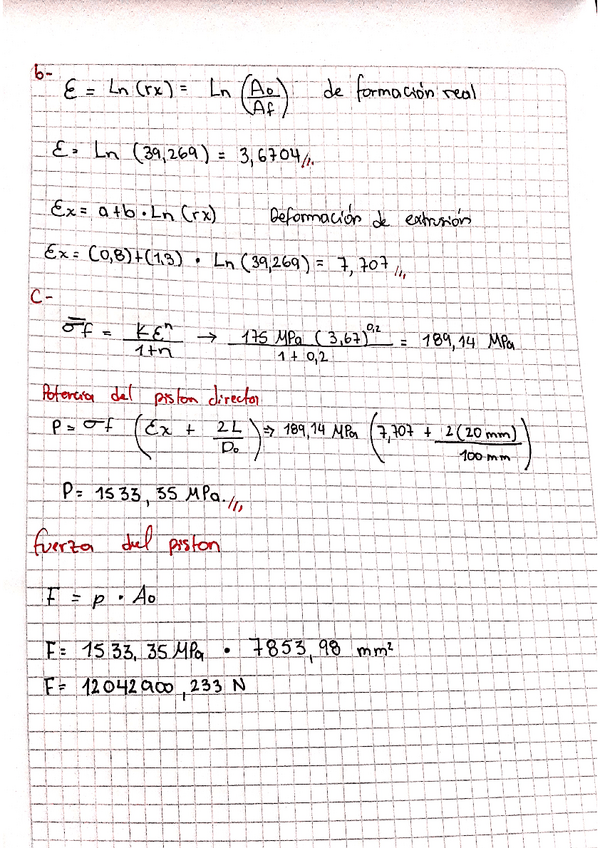 b-
ε = Ln (rx) = Ln (Ao/Af) de formación real
ε = Ln (39,269) = 3,6704//.
εx = a+b·Ln (rx) Deformación de extrusión
εx = (0,8)+(1,3) · Ln (39,269) = 7,707//,
C-
σ̅f = kεⁿ/1+n → 175 MPa (3,67)^0,2/1 + 0,2 = 189,14 MPa
Potencia del piston director
P = σf (εx + 2L/Do) ⇒ 189,14 MPa (7,707 + 2(20 mm)/100 mm)
P = 1533,35 MPa.//,
fuerza del piston
F = p · Ao
F = 1533,35 MPa · 7853,98 mm²
F = 12042900,233 N